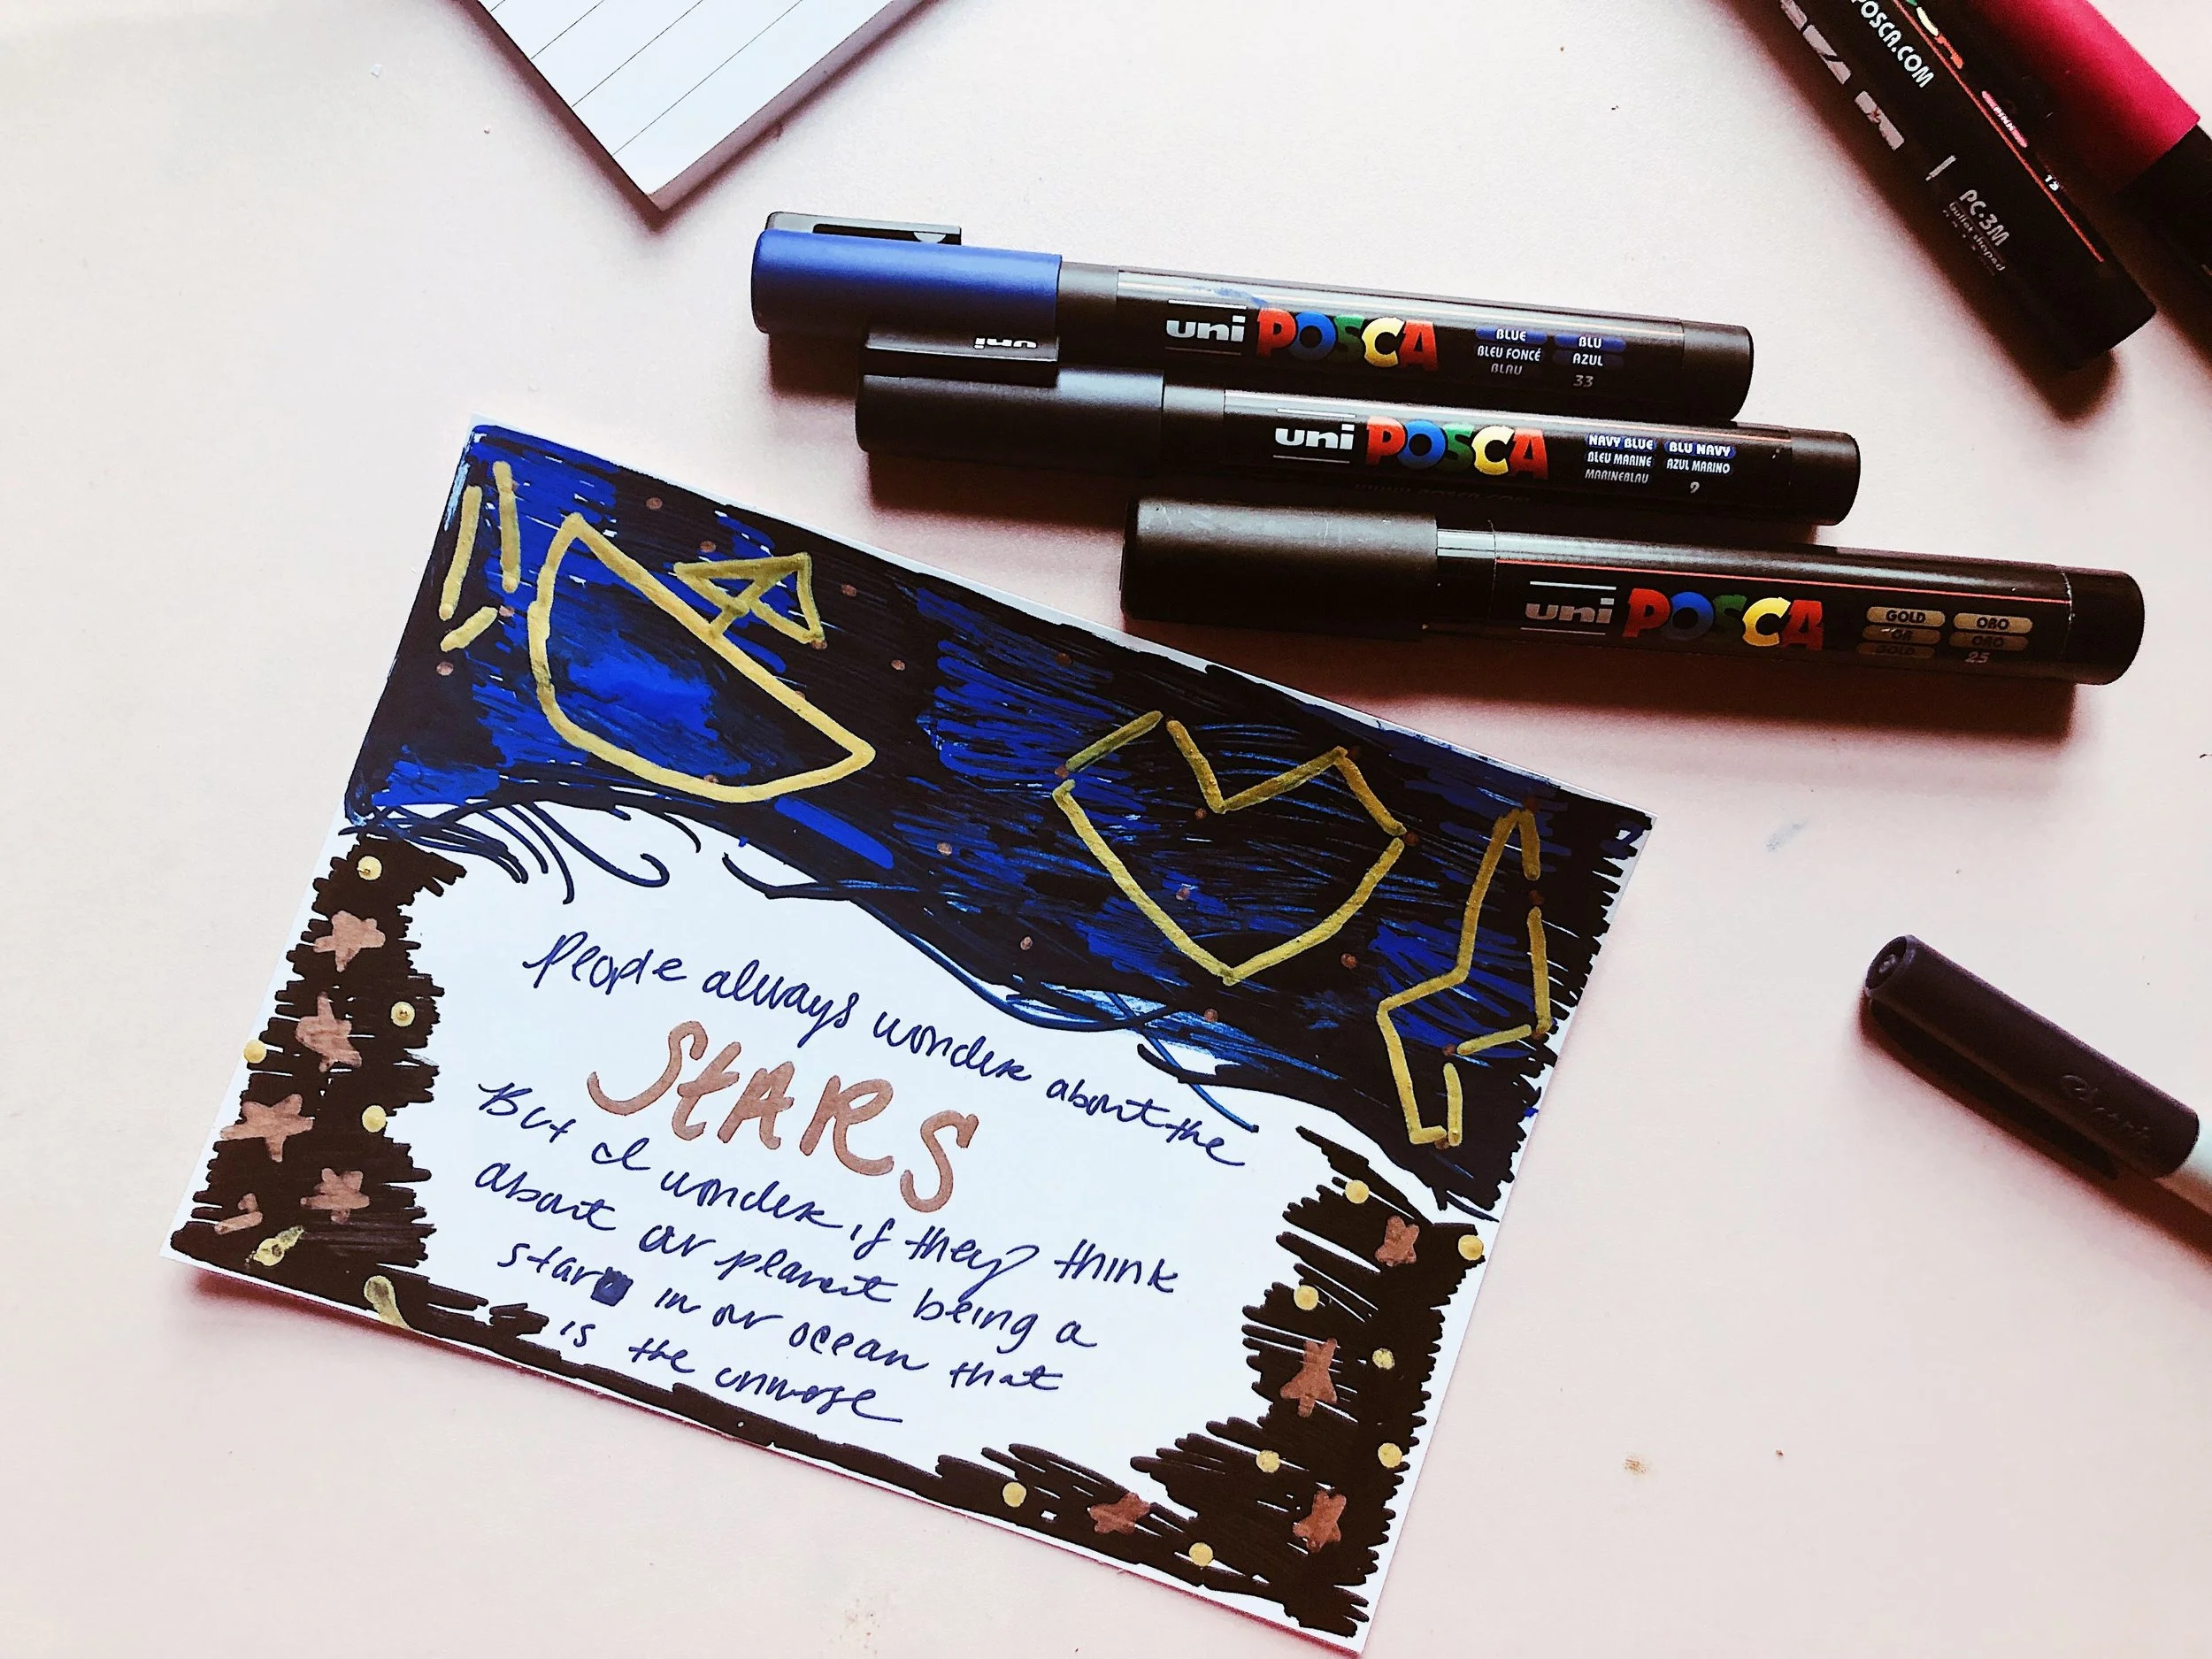 POSCA.COM
PC-3M
bullet shaped
uni POSCA
BLUE BLU
BLEU FONCÉ AZUL
BLAU 33
uni
uni POSCA
NAVY BLUE BLU NAVY
BLEU MARINE AZUL MARINO
MARINEBLAU 9
uni POSCA
GOLD ORO
OR ORO
GOLD 25
People always wonder about the
StARS
But I wonder if they think
about our planet being a
star in our ocean that
is the universe